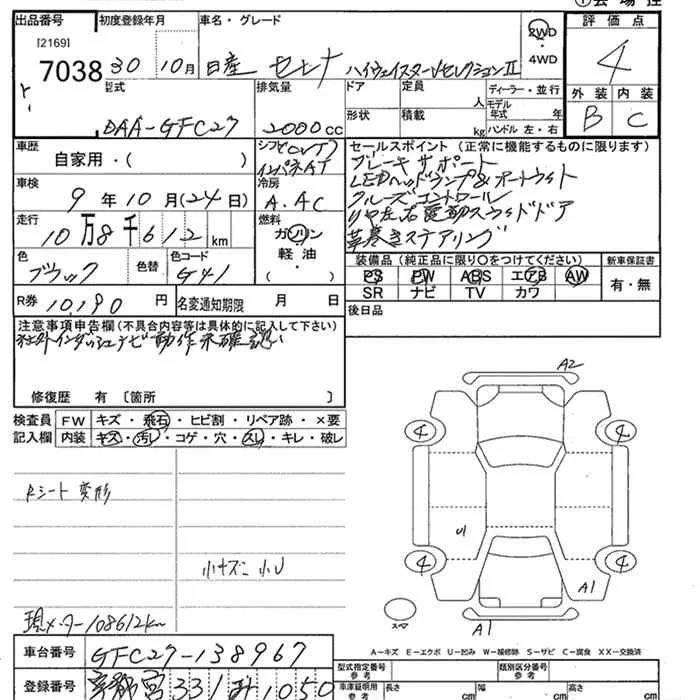 ①会場控
出品番号 初度登録年月 車名・グレード 評価点
[2169]
7038 30 10月 日産 セレナ ハイウェイスターVセレクションⅡ 2WD 4
・4WD
型式 排気量 ドア 定員 人 ディーラー・並行 外装 内装
DAA-GFC27 2000cc 形状 積載 kg モデル年式 年 B C
ハンドル 左・右
車歴 シフト セールスポイント (正常に機能するものに限ります)
自家用・( ) インパネAT ブレーキサポート
車検 冷房 LEDヘッドランプ&オートライト
9年10月(24日) A.AC クルーズコントロール
走行 燃料 リヤ左右電動スライドドア
10万8千612km ガソリン 革巻きステアリング
軽油・
( )
色 色替 色コード 装備品 (純正品に限り○をつけてください) 新車保証書
ブラック G41 PS PW ABS エアB AW 有・無
SR ナビ TV カワ
R券 10,190円 名変通知期限 月 日 後日品
注意事項申告欄(不具合内容等は具体的に記入して下さい)
社外インダッシュナビ動作未確認
修復歴 有 [箇所 ]
検査員 FW キズ・飛石・ヒビ割・リペア跡・×要
記入欄 内装 キズ・汚レ・コゲ・穴・スレ・キレ・破レ
A2
4 4
Rシート変形
U1
小キズ 小U
4 4
A1
現メーター108612km
スマ
A1
A-キズ E-エクボ U-凹み W-補修跡 S-サビ C-腐食 XX-交換済
車台番号 GFC27-138967
型式指定番号 類別区分番号
参考 参考
登録番号 京都 331 1050
車庫証明用 長さ 幅 高さ
参考 cm cm cm